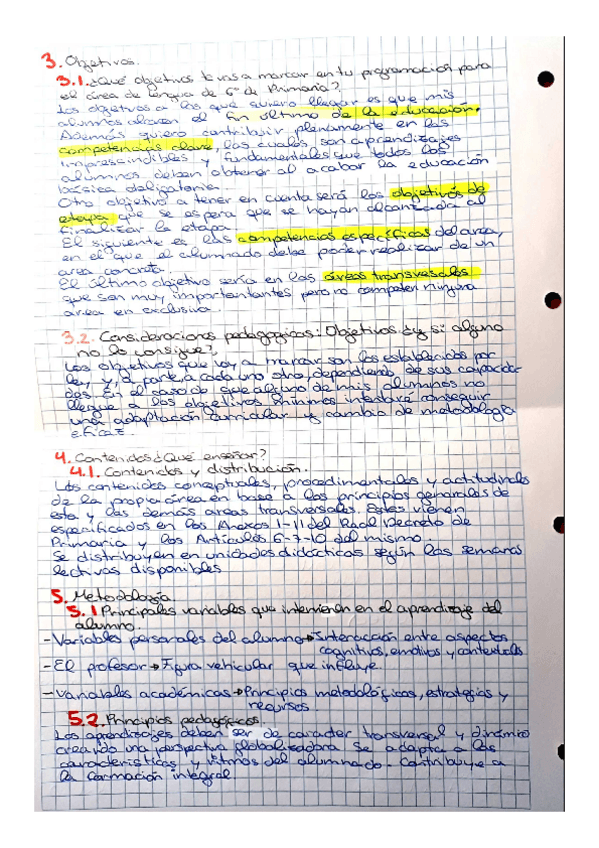 3. Objetivos.
3.1. ¿Qué objetivos te vas a marcar en tu programación para
el área de Lengua de 6º de Primaria?
Los objetivos a los que quiero llegar es que mis
alumnos alcancen el fin último de la educación.
Además quiero contribuir plenamente en las
competencias clave, las cuales son aprendizajes
imprescindibles y fundamentales que todos los
alumnos deben obtener al acabar la educación
básica obligatoria.
Otro objetivo a tener en cuenta será los objetivos de
etapa que se espera que se hayan alcanzado al
finalizar la etapa.
El siguiente es las competencias específicas del area,
en el que el alumnado debe poder realizar de un
area concreta.
El último objetivo sería en las áreas transversales
que son muy importantes pero no competen ninguna
area en exclusiva.
3.2. Consideraciones pedagogicas: Objetivos ¿y si alguno
no lo consigue?
Los objetivos que voy a marcar son los establecidos por
ley y, a parte, a cada uno otro, dependiendo de sus capacida-
des. En el caso de que alguno de mis alumnos no
llegue a los objetivos mínimos intentaré conseguir
una adaptación curricular y cambio de metodologia
eficaz.
4. Contenidos ¿Qué enseñar?
4.1. Contenidos y distribución.
Los contenidos conceptuales, procedimentales y actitudinales
de la propia área en base a los principios generales de
esta y las demás areas transversales. Estos vienen
especificados en los Anexos 1-11 del Real Decreto de
Primaria y los Artículos 6-7-10 del mismo.
Se distribuyen en unidades didácticas según las semanas
lectivas disponibles
5. Metodología.
5.1 Principales variables que intervienen en el aprendizaje del
alumno.
- Variables personales del alumno → Interacción entre aspectos
cognitivos, emotivos y contextuales
- El profesor → Figura vehicular que influye
- Variables académicas → Principios metodológicos, estrategias y
recursos
5.2. Principios pedagógicos.
Los aprendizajes deben ser de caracter transversal y dinámico
creando una perspectiva globalizadora. Se adapta a las
características y ritmos del alumnado. Contribuye a
la formación integral